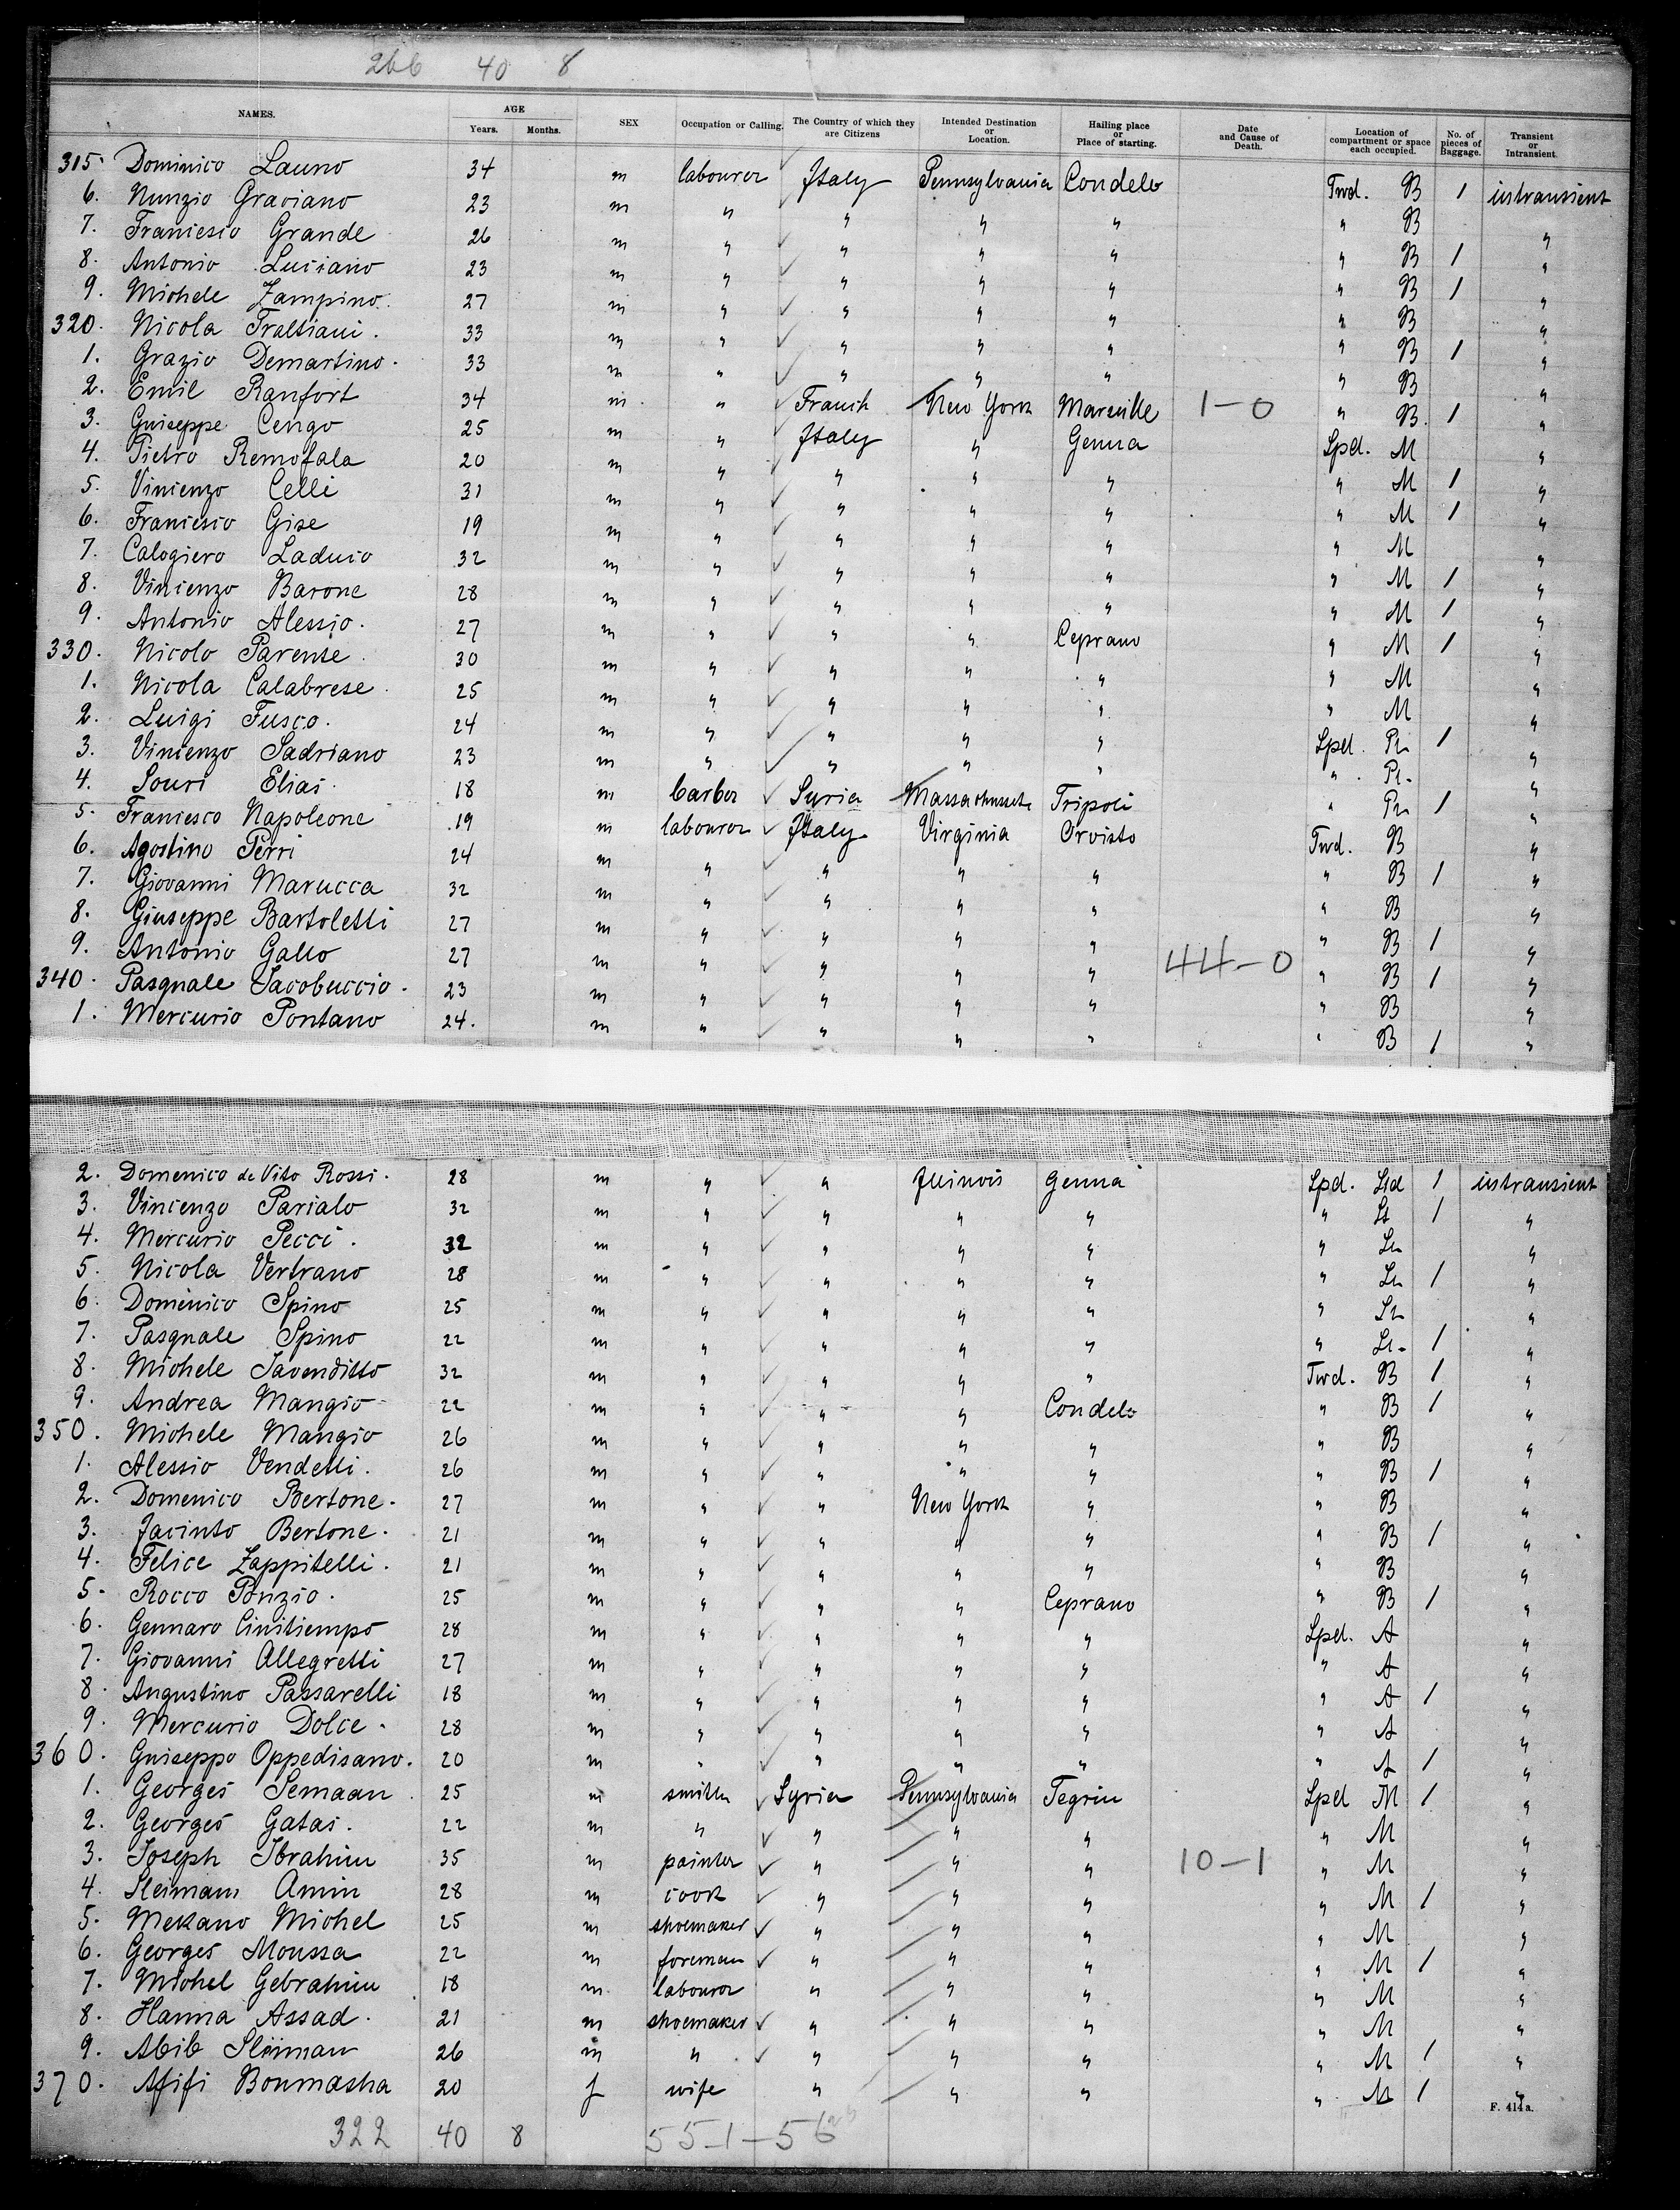 266 40 8
NAMES. AGE Years. Months. SEX Occupation or Calling. The Country of which they are Citizens Intended Destination or Location. Hailing place or Place of starting. Date and Cause of Death. Location of compartment or space each occupied. No. of pieces of Baggage. Transient or Intransient.
315. Dominico Launo 34 m labourer Italy Pennsylvania Condelo Twd. B 1 intransient
6. Nunzio Graciano 23 m " " " " " B "
7. Francesco Grande 26 m " " " " " B 1 "
8. Antonio Luciano 23 m " " " " " B 1 "
9. Michele Zampino. 27 m " " " " " B "
320. Nicola Frattiani. 33 m " " " " " B 1 "
1. Grazio Demartino. 33 m " " " " " B "
2. Emil Ranfort 34 m " French New York Marseille 1-0 " B. 1 "
3. Guiseppe Cengo 25 m " Italy " Genua Spd. M "
4. Pietro Remofala 20 m " " " " " M 1 "
5. Vincenzo Celli 31 m " " " " " M 1 "
6. Francesco Gise 19 m " " " " " M "
7. Calogiero Laduco 32 m " " " " " M 1 "
8. Vincenzo Barone 28 m " " " " " M 1 "
9. Antonio Alessio. 27 m " " " Ceprano " M 1 "
330. Nicolo Parense 30 m " " " " " M "
1. Nicola Calabrese 25 m " " " " " M "
2. Luigi Fusco. 24 m " " " " Spd. Pr. 1 "
3. Vincenzo Sadriano 23 m " " " " " Pr. "
4. Souri Elias 18 m barber Syria Massachusets Tripoli " Pr 1 "
5. Francesco Napoleone 19 m labourer Italy Virginia Orvisto Twd. B "
6. Agostino Perri 24 m " " " " " B 1 "
7. Giovanni Marucca 32 m " " " " " B "
8. Giuseppe Bartoletti 27 m " " " " " B 1 "
9. Antonio Gallo 27 m " " " " 44-0 " B 1 "
340. Pasquale Iacobuccio. 23 m " " " " " B "
1. Mercurio Pontano 24. m " " " " " B 1 "
2. Domenico de Vito Rossi. 28 m " " Illinois Genua Spd. 1 intransient
3. Vincenzo Parialo 32 m " " " " " 1 "
4. Mercurio Pecci. 32 m " " " " " "
5. Nicola Vertrano 28 m " " " " " 1 "
6. Domenico Spino 25 m " " " " " "
7. Pasquale Spino 22 m " " " " " 1 "
8. Michele Iavenditto 32 m " " " " Twd. B 1 "
9. Andrea Mangio 22 m " " " Condelo " B 1 "
350. Michele Mangio 26 m " " " " " B "
1. Alessio Vendetti. 26 m " " " " " B 1 "
2. Domenico Bertone. 27 m " " New York " " B "
3. Jacinto Bertone. 21 m " " " " " B 1 "
4. Felice Zappitelli. 21 m " " " " " B "
5. Rocco Ponzio. 25 m " " " Ceprano " B 1 "
6. Gennaro Cinitiempo 28 m " " " " Spd. A "
7. Giovanni Allegretti 27 m " " " " " A "
8. Angustino Passarelli 18 m " " " " " A 1 "
9. Mercurio Dolce. 28 m " " " " " A "
360. Guiseppo Oppedisano. 20 m " " " " " A 1 "
1. Georges Semaan 25 m smith Syria Pennsylvania Tegrin Spd M 1 "
2. Georges Gatas. 22 m " " " " " M "
3. Joseph Ibrahim 35 m painter " " " 10-1 " M "
4. Sleimam Amin 28 m cook " " " " M 1 "
5. Mekano Michel 25 m shoemaker " " " " M "
6. Georges Moussa 22 m foreman " " " " M 1 "
7. Michel Gebrahim 18 m labourer " " " " M "
8. Hanna Assad. 21 m shoemaker " " " " M "
9. Abib Sliman 26 m " " " " " M 1 "
370. Afifi Boumasha 20 f wife " " " " M 1 "
F. 414a.
322 40 8 55-1-56